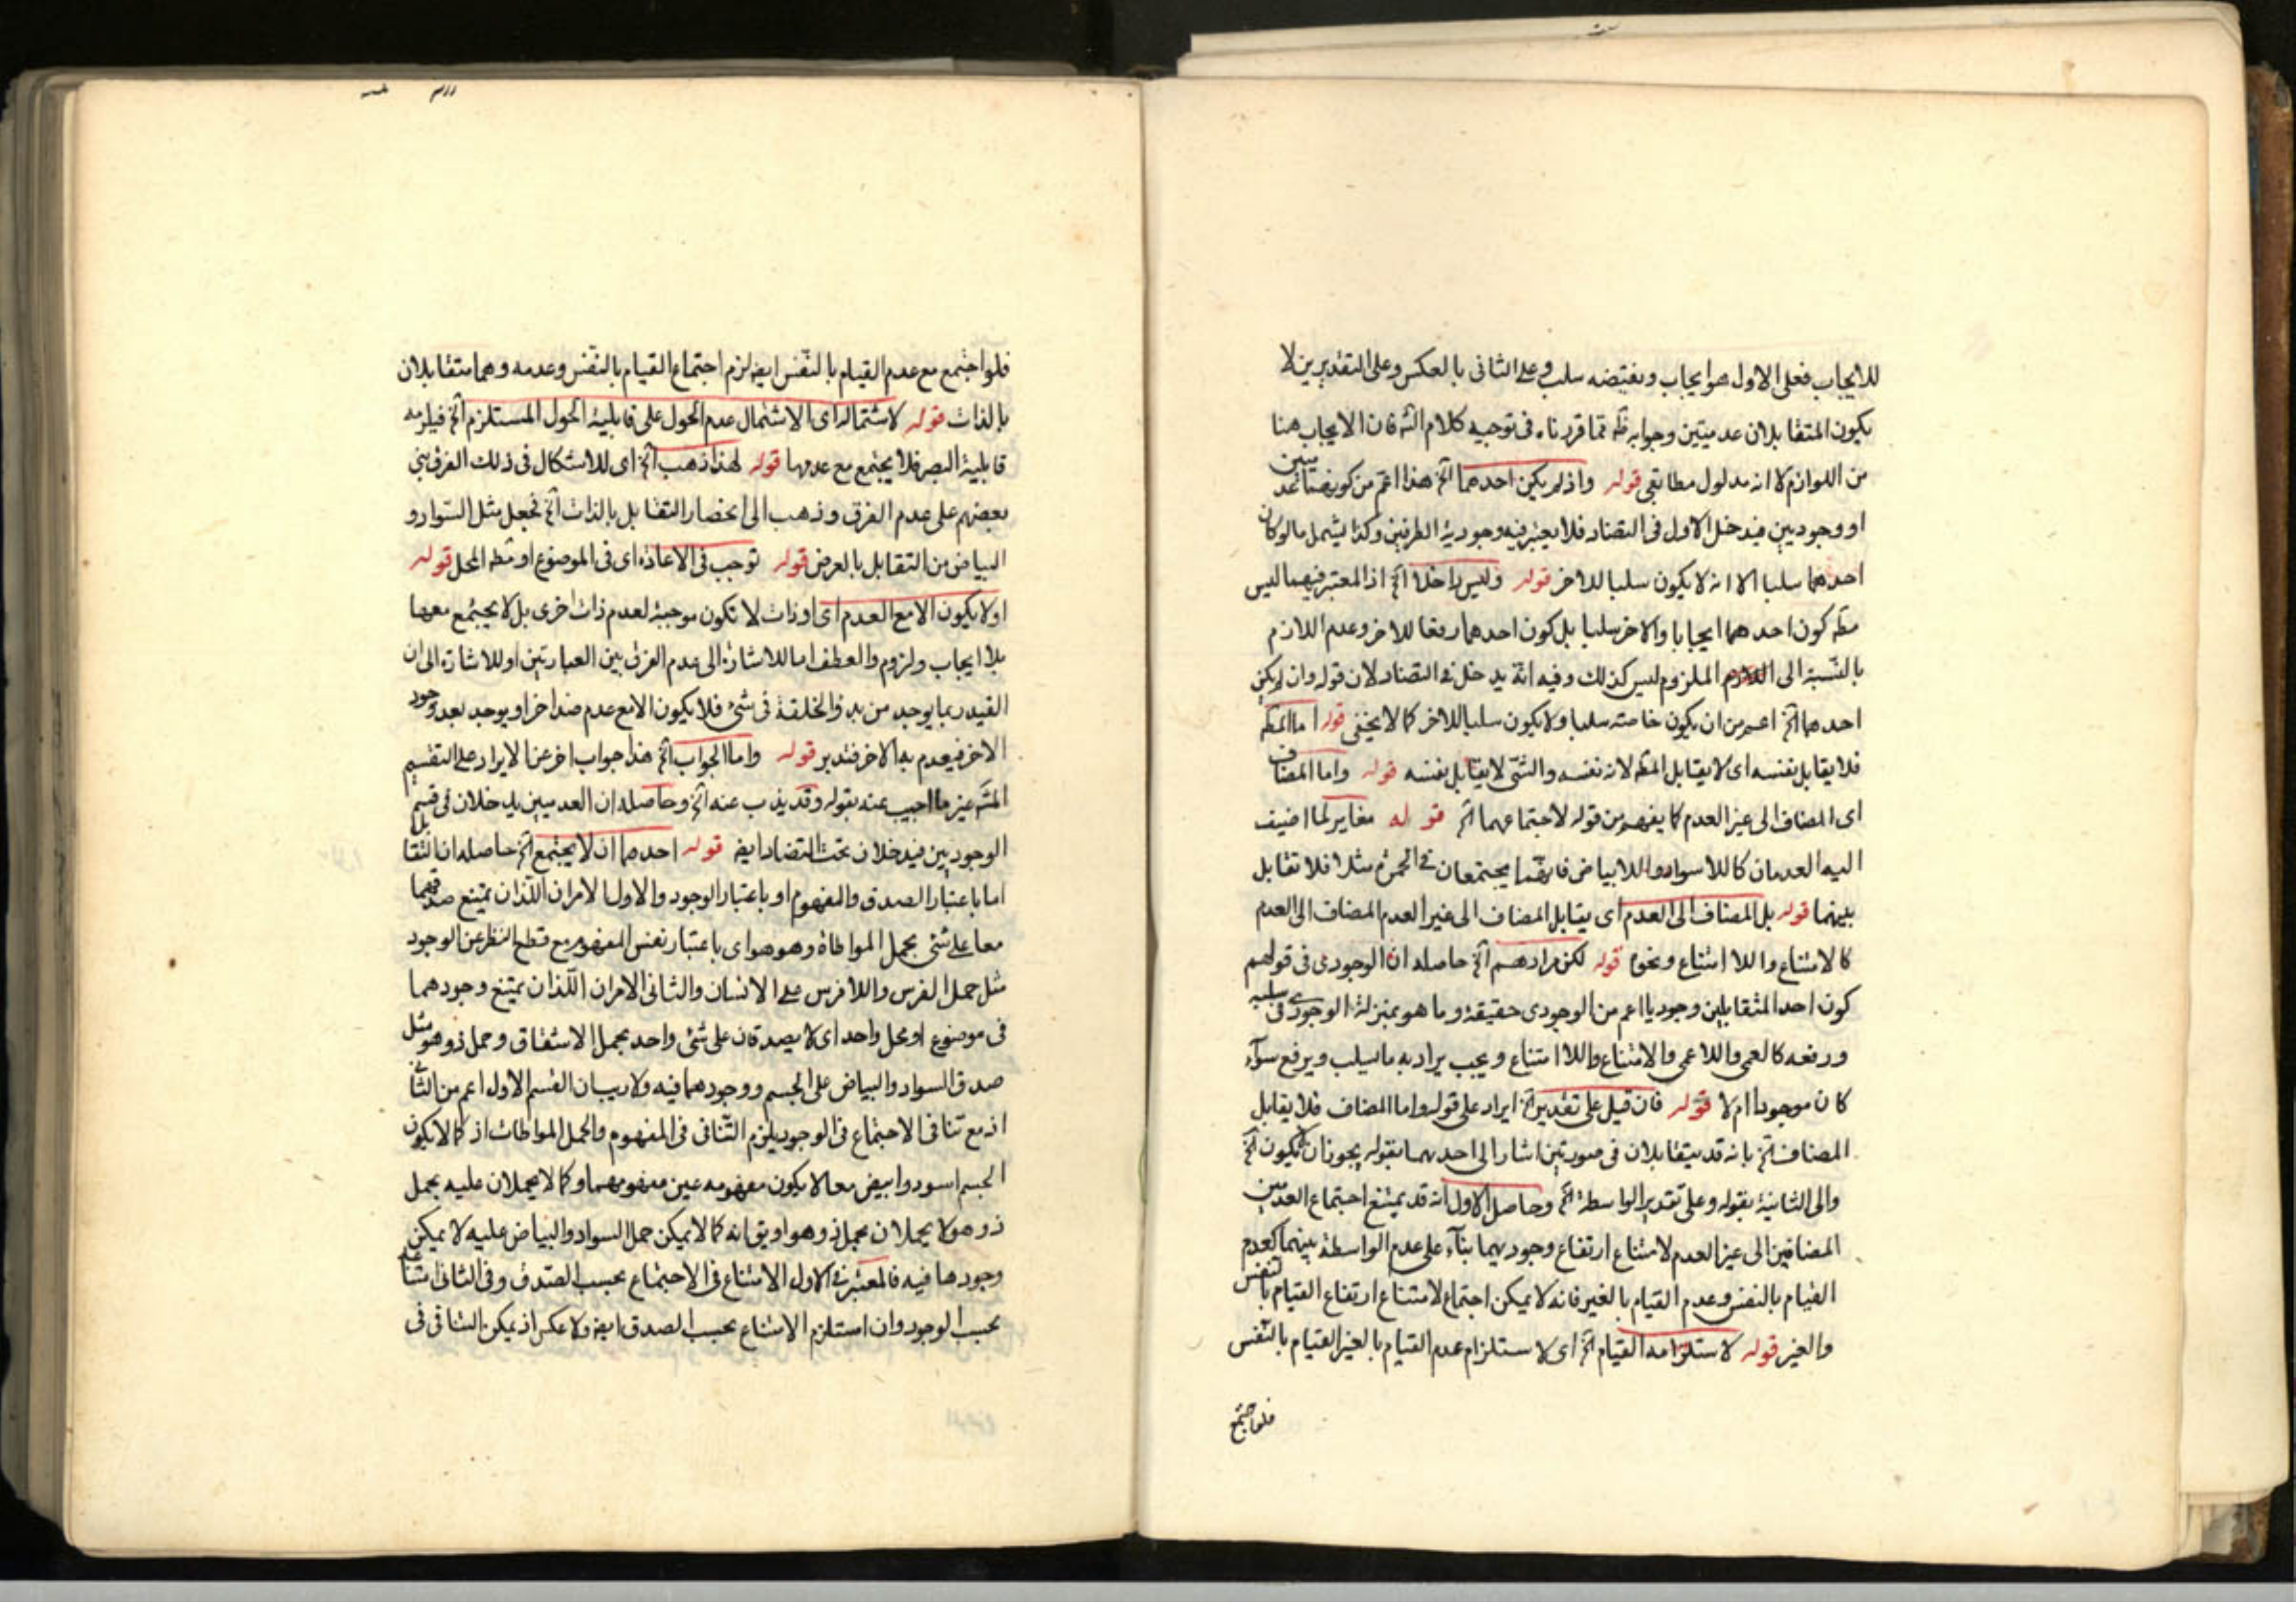 للايجاب فعلى الاول هو ايجاب ونقيضه سلب وعلى الثانى بالعكس وعلى التقديرين لا
يكون المتقابلان عدميتين وجوابه ظه مما قررناه فى توجيه كلام الشه فان الايجاب هنا
من اللوازم لا انه مدلول مطابقى قوله واذ لم يكن احدهما آلخ هذا اعم من كونهما عدميين
او وجوديين فيدخل الاول فى التضاد فلا يعتبر فيه وجودية الطرفين وكذا يشمل ما لو كان
احدهما سلبا الا انه لا يكون سلبا للاخر قوله وليس داخلا آلخ اذ المعتبر فيهما ليس
مطه كون احدهما ايجابا والاخر سلبا بل كون احدهما رفعا للاخر وعدم اللازم
بالنسبة الى الملزوم ليس كذلك وفيه انه يدخل فى التضاد لان قوله وان لم يكن
احدهما آلخ اعم من ان يكون خاصته سلبا ولا يكون سلبا للاخر كما لا يخفى قوله اما المطه
فلا يقابل نفسه اى لا يقابل المطه لانه نفسه والشئ لا يقابل نفسه قوله واما المضاف
اى المضاف الى غير العدم كما يفهم من قوله لاجتماعهما آلخ قوله مغاير لما اضيف
اليه العدمان كاللاسواد واللابياض فانهما يجتمعان فى الحمرة مثلا فلا تقابل
بينهما قوله بل المضاف الى العدم اى يقابل المضاف الى غير العدم المضاف الى العدم
كالامتناع واللاامتناع ونحوه قوله لكن مرادهم آلخ حاصله ان الوجودى فى قولهم
كون احد المتقابلين وجوديا اعم من الوجودى حقيقة وما هو بمنزلة الوجودى فى سلبه
ورفعه كالعمى واللاعمى والامتناع واللاامتناع ويجب يراد به ما يسلب ويرفع سوآء
كان موجودا ام لا قوله فان قيل على تقدير آلخ ايراد على قوله واما المضاف فلا يقابل
المضاف آلخ بانه قد يتقابلان فى صورتين اشار الى احديهما بقوله يجوز ان لا يكون آلخ
والى الثانية بقوله وعلى تقدير الواسطة آلخ وحاصل الاول انه قد يمتنع اجتماع العدمين
المضافين الى غير العدم لامتناع ارتفاع وجوديهما بنآء على عدم الواسطة بينهما كعدم
القيام بالنفس وعدم القيام بالغير فانه لا يمكن اجتماع لامتناع ارتفاع القيام بالنفس
والغير قوله لاستلزامه القيام آلخ اى لاستلزام عدم القيام بالغير القيام بالنفس
فلو اجتمع
فلو اجتمع مع عدم القيام بالنفس ايضه لزم اجتماع القيام بالنفس وعدمه وهما متقابلان
بالذات قوله لاشتماله اى الاشتمال عدم الحول على قابلية الحول المستلزم آلخ فيلزمه
قابلية البصر فلا يجتمع مع عدمها قوله لهذا ذهب آلخ اى للاشكال فى ذلك الفرق بنى
بعضهم على عدم الفرق وذهب الى انحصار التقابل بالذات آلخ فجعل مثل السواد و
البياض من التقابل بالعرض قوله توجب فى الاعاذة اى فى الموضوع او مطه المحل قوله
او لا يكون الا مع العدم اى او ذات لا تكون موجبة لعدم ذات اخرى بل لا يجتمع معها
بلا ايجاب ولزوم والعطف اما للاشارة الى عدم الفرق بين العبارتين او للاشارة الى ان
القيد ربما يوجد من بدؤ الخلقة فى شئ فلا يكون الا مع عدم ضد اخر او يوجد بعد وجود
الاخر فيعدم به الاخر فتدبر قوله واما الجواب آلخ هذا جواب اخر عن الايراد على التقسيم
المشه غير ما اجيب عنه بقوله وقد يذب عنه آلخ وحاصله ان العدميين يدخلان فى قسم
الوجوديين فيدخلان تحت التضاد ايضه قوله احدهما ان لا يجتمع آلخ حاصله ان التقابل
اما باعتبار الصدق والمفهوم او باعتبار الوجود والاول الامران اللذان يمتنع صدقهما
معا على شئ بحمل المواطاة وهو هو اى باعتبار نفس المفهوم مع قطع النظر عن الوجود
مثل حمل الفرس واللافرس على الانسان والثانى الامران اللذان يمتنع وجودهما
فى موضوع او محل واحد اى لا يصدقان على شئ واحد بحمل الاشتقاق وحمل ذو هو مثل
صدق السواد والبياض على الجسم ووجودهما فيه ولا ريب ان القسم الاول اعم من الثانى
اذ مع تنافى الاجتماع فى الوجود يلزم التنافى فى المفهوم والحمل المواطات اذ كما لا يكون
الجسم اسود وابيض معا لا يكون مفهومه عين مفهومهما وكما لا يحملان عليه بحمل
ذو هو لا يحملان بحمل ذو هو او يق انه كما لا يمكن حمل السواد والبياض عليه لا يمكن
وجودهما فيه فالمعتبر فى الاول الامتناع فى الاجتماع بحسب الصدق وفى الثانى امتناعه
بحسب الوجود وان استلزم الامتناع بحسب الصدق ايضه ولا عكس اذ يمكن التنافى فى